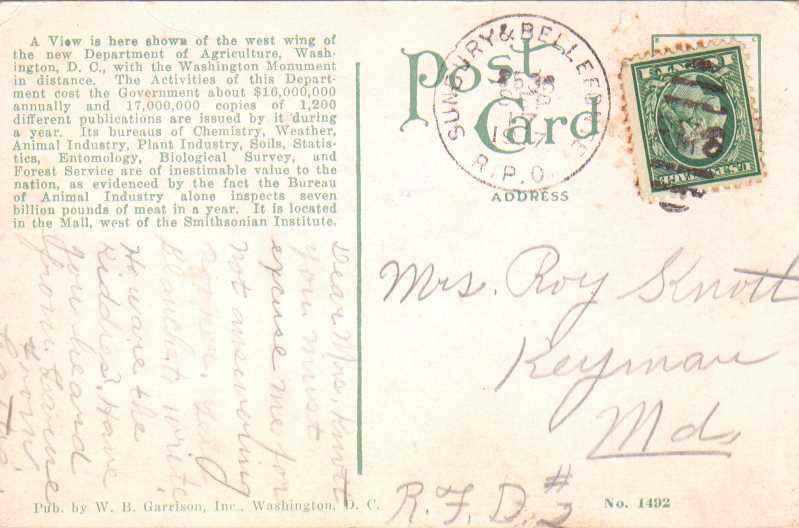 A View is here shown of the west wing of
the new Department of Agriculture, Wash-
ington, D. C., with the Washington Monument
in distance. The Activities of this Depart-
ment cost the Government about $16,000,000
annually and 17,000,000 copies of 1,200
different publications are issued by it during
a year. Its bureaus of Chemistry, Weather,
Animal Industry, Plant Industry, Soils, Statis-
tics, Entomology, Biological Survey, and
Forest Service are of inestimable value to the
nation, as evidenced by the fact the Bureau
of Animal Industry alone inspects seven
billion pounds of meat in a year. It is located
in the Mall, west of the Smithsonian Institute.
Post
Card
ADDRESS
SUNBURY & BELLEFONTE
17
R.P.O.
Dear Mrs. Knott
You must
excuse me for
not answering
write
How are the
kiddies? Have
you heard
from
Mrs. Roy Knott
Keymar
Md.
R. F. D. # 2
Pub. by W. B. Garrison, Inc., Washington, D. C.
No. 1492